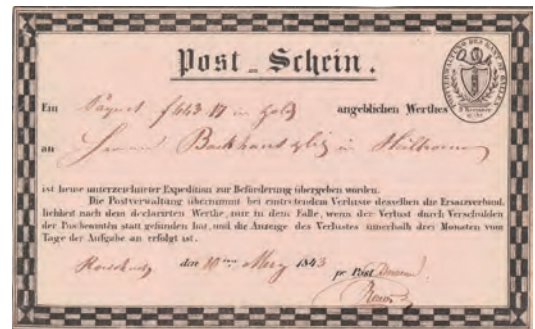 Post-Schein.
Ein Paquet f 443.17 in Gold angeblichen Werthes
an in Heilbronn
ist heute unterzeichneter Expedition zur Beförderung übergeben worden.
Die Postverwaltung übernimmt bei eintretendem Verluste desselben die Ersatzverbind-
lichkeit nach dem declarirten Werthe, nur in dem Falle, wenn der Verlust durch Verschulden
der Postbeamten statt gefunden hat, und die Anzeige des Verlustes innerhalb drei Monaten vom
Tage der Aufgabe an erfolgt ist.
Rorschach den 10ten Merz 1843
pr Post Bureau